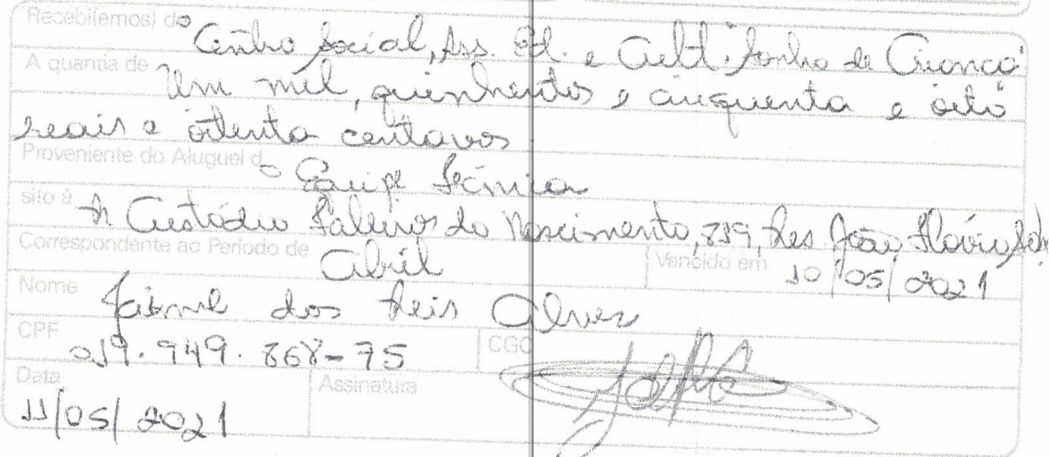 Recebi(emos) do Centro Social, Ass. Ed. e Cult. Sonho de Criança
A quantia de Um mil, quinhentos e cinquenta e oito
reais e oitenta centavos
Proveniente do Aluguel d o Equipe Técnica
sito à R Custódio do Nascimento, Res João Flávio
Correspondente ao Período de Abril
Vencido em 10/05/2021
Nome dos Reis Alves
CPF
CGC
Data 11/05/2021
Assinatura